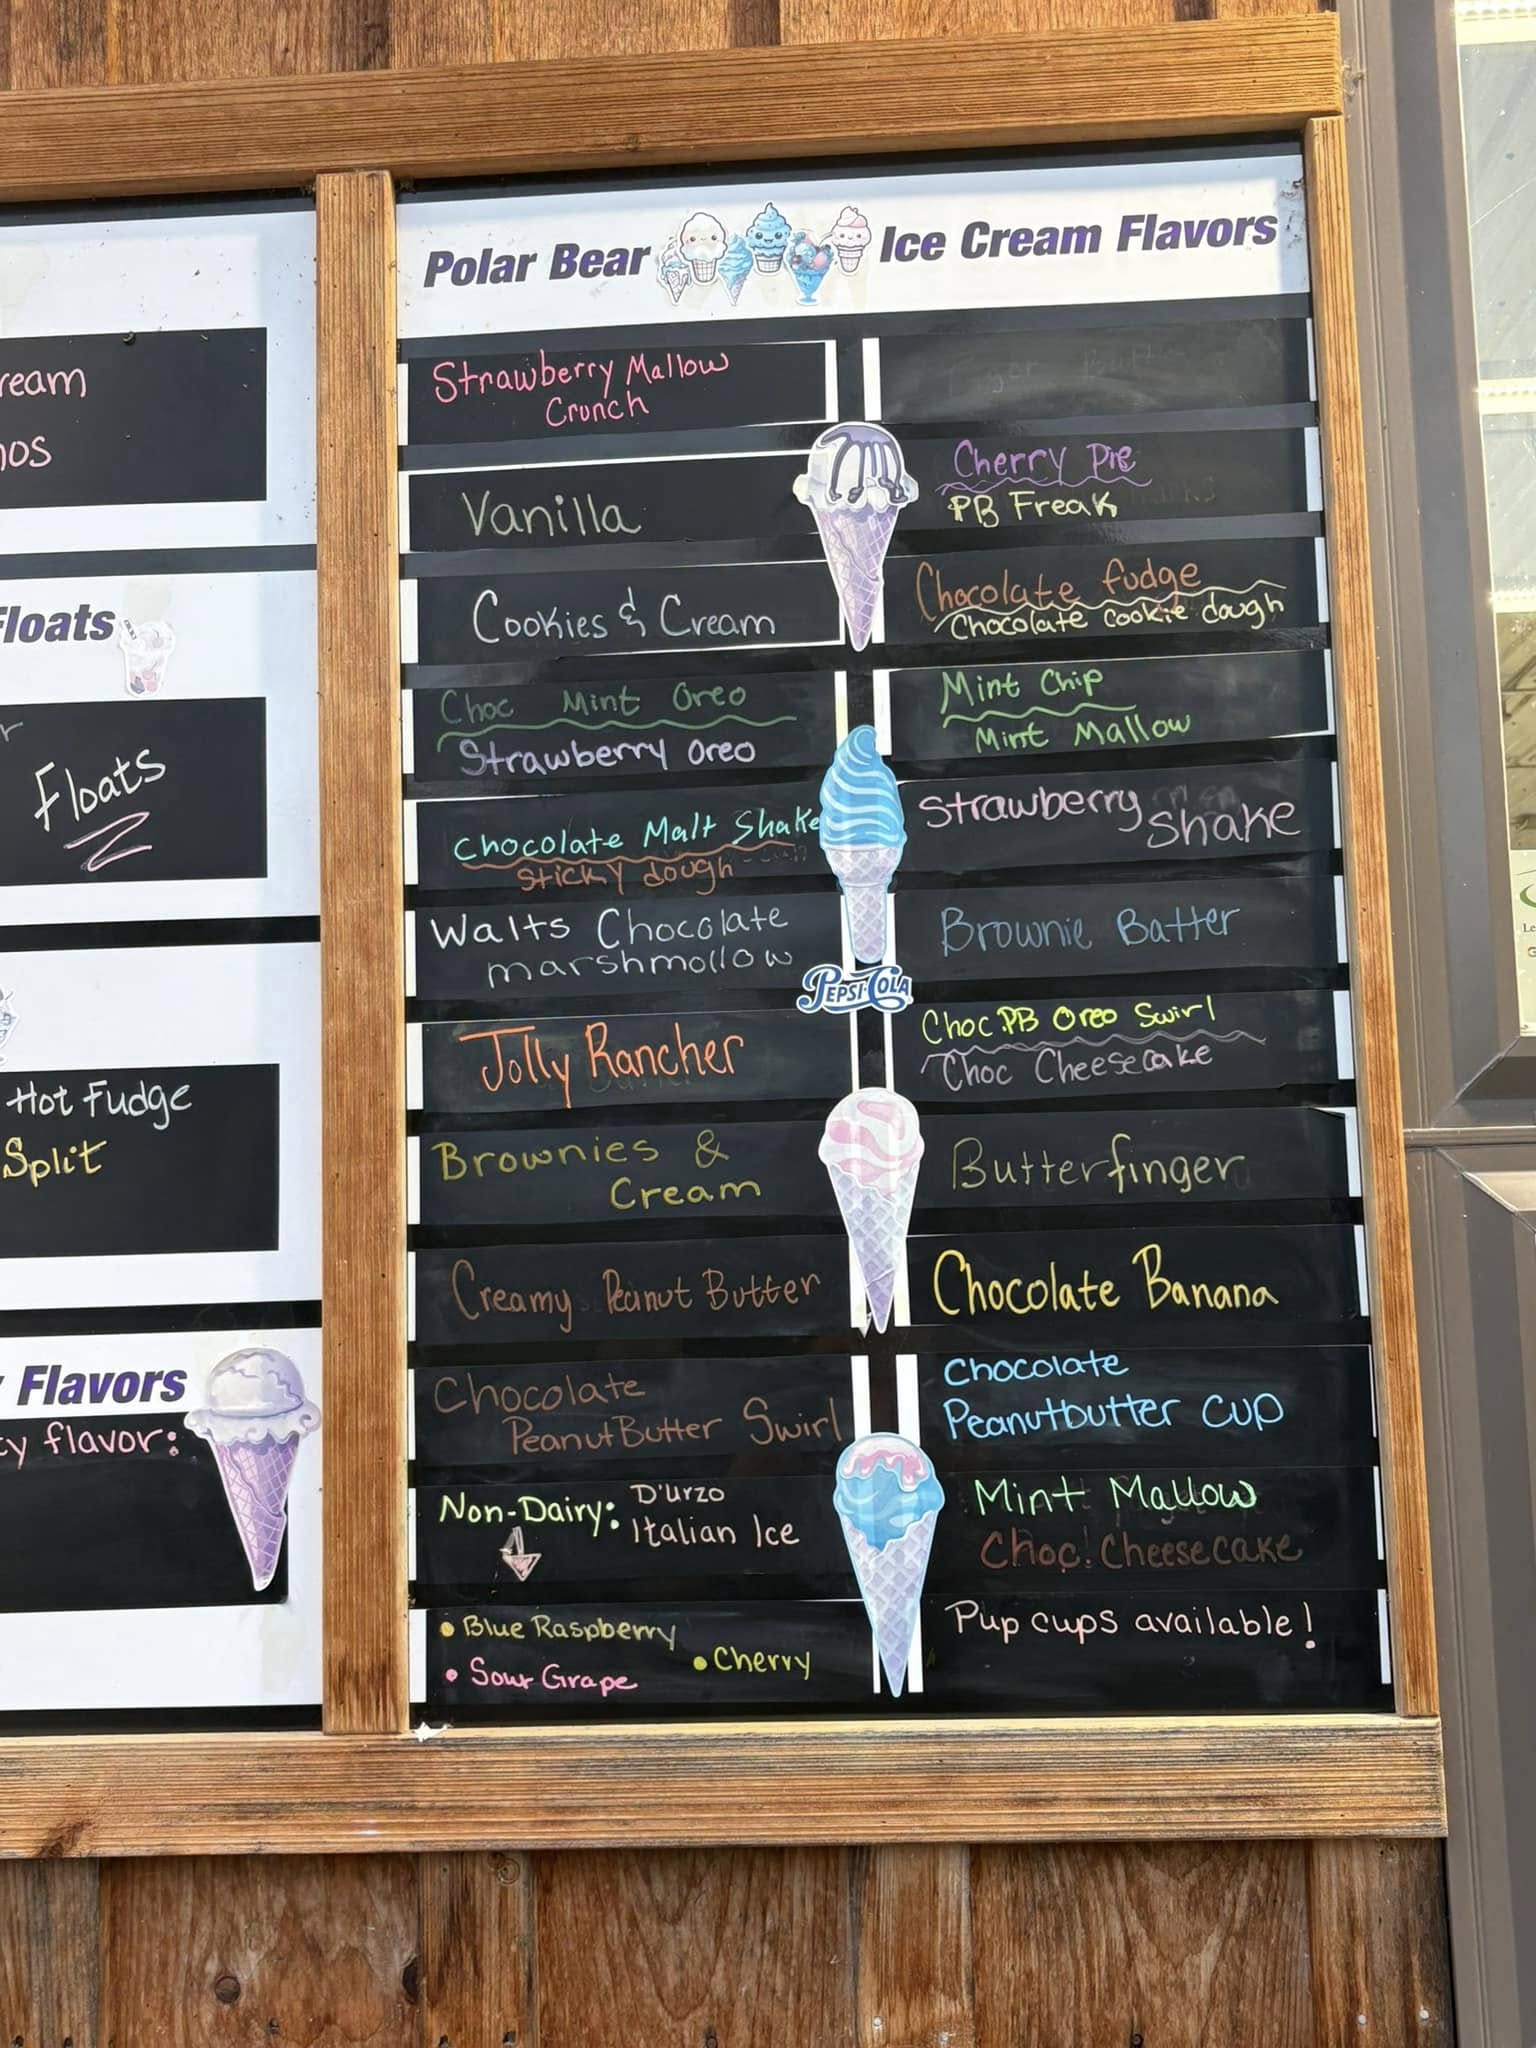 ream
Floats
Floats
Hot Fudge
Split
Flavors
cy flavor:
Polar Bear Ice Cream Flavors
Strawberry Mallow
Crunch
Vanilla
Cookies & Cream
Choc Mint Oreo
Strawberry Oreo
Chocolate Malt Shake
Sticky dough
Walts Chocolate
marshmollow
Jolly Rancher
Brownies &
Cream
Creamy Peanut Butter
Chocolate
PeanutButter Swirl
Non-Dairy: D'urzo
Italian Ice
• Blue Raspberry
• Cherry
• Sour Grape
Cherry Pie
PB Freak
Chocolate fudge
Chocolate cookie dough
Mint Chip
Mint Mallow
Strawberry
Shake
Brownie Batter
Choc PB Oreo Swirl
Choc Cheesecake
Butterfinger
Chocolate Banana
Chocolate
Peanutbutter Cup
Mint Mallow
Choc. Cheesecake
Pup cups available!
PEPSI-COLA